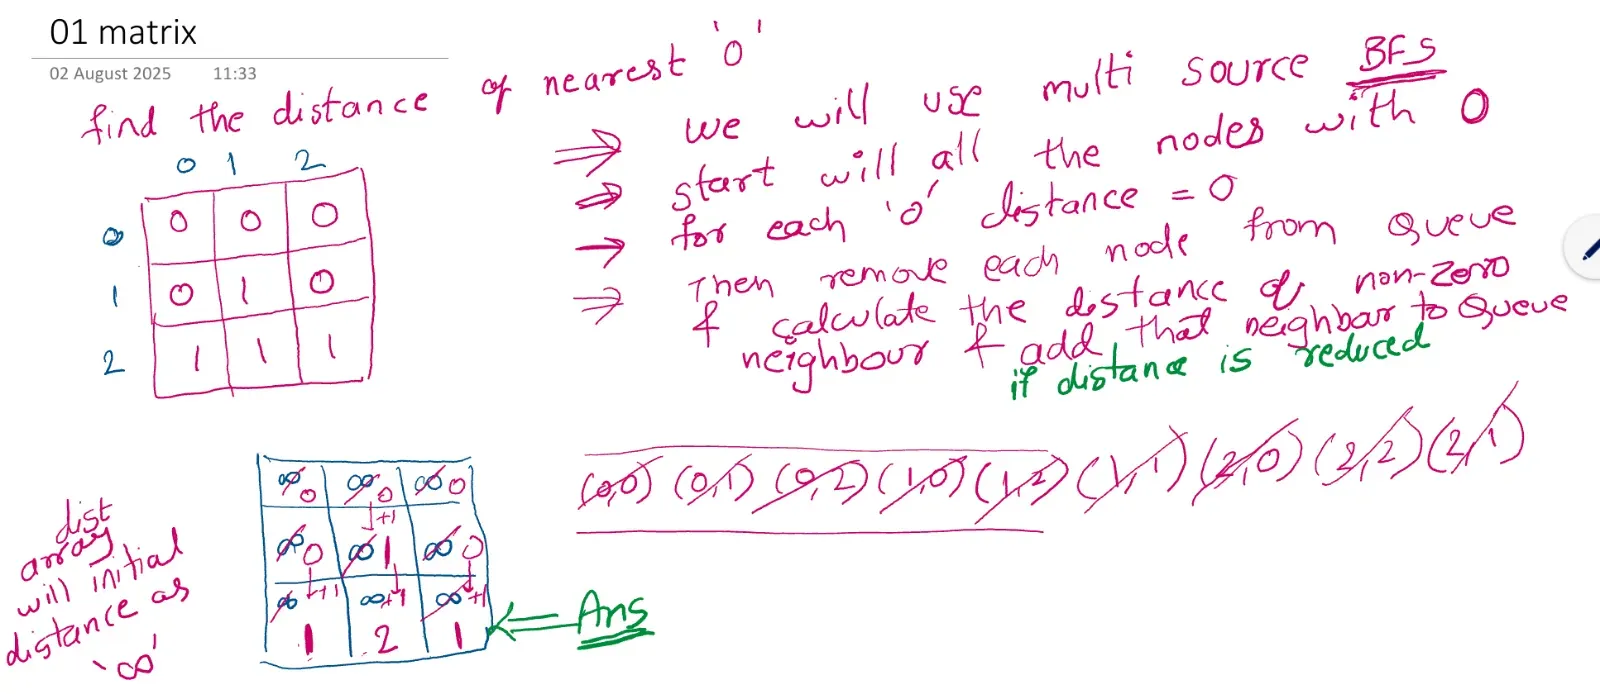 01 matrix
02 August 2025 11:33
find the distance of nearest '0'
⇒ we will use multi source BFS
⇒ start will all the nodes with 0
→ for each '0' distance = 0
⇒ Then remove each node from Queue
& calculate the distance of non-zero
neighbour & add that neighbour to Queue
if distance is reduced
0 1 2
0 0 0 0
1 0 1 0
2 1 1 1
(0,0) (0,1) (0,2) (1,0) (1,2) (1,1) (2,0) (2,2) (2,1)
dist
array
will initial
distance as
'∞'
∞ 0 ∞ 0 ∞ 0
↓+1
∞ 0 ∞ 1 ∞ 0
∞ ↓+1 ∞ ↓+1 ∞ ↓+1
1 2 1
⇐ Ans